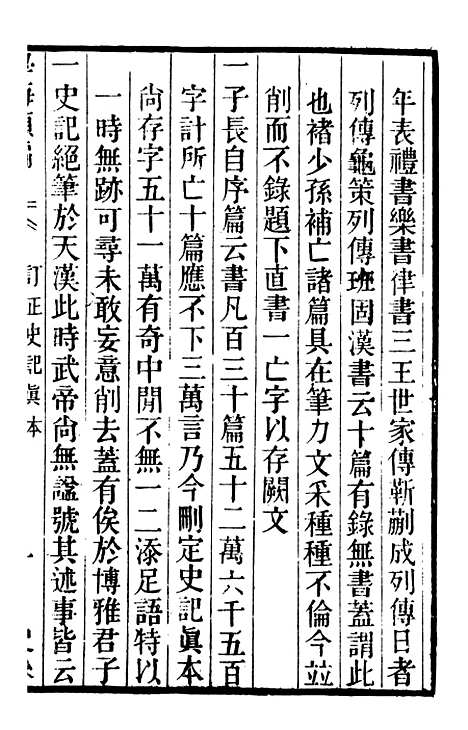 年表禮書樂書律書三王世家傳靳蒯成列傳日者
列傳龜策列傳班固漢書云十篇有錄無書蓋謂此
也褚少孫補亡諸篇具在筆力文采種種不倫今竝
削而不錄題下直書一亡字以存闕文
一子長自序篇云書凡百三十篇五十二萬六千五百
字計所亡十篇應不下三萬言乃今刪定史記眞本
尙存字五十一萬有奇中閒不無一二添足語特以
一時無跡可尋未敢妄意削去蓋有俟於博雅君子
一史記絕筆於天漢此時武帝尙無諡號其述事皆云
訂正史記眞本
一